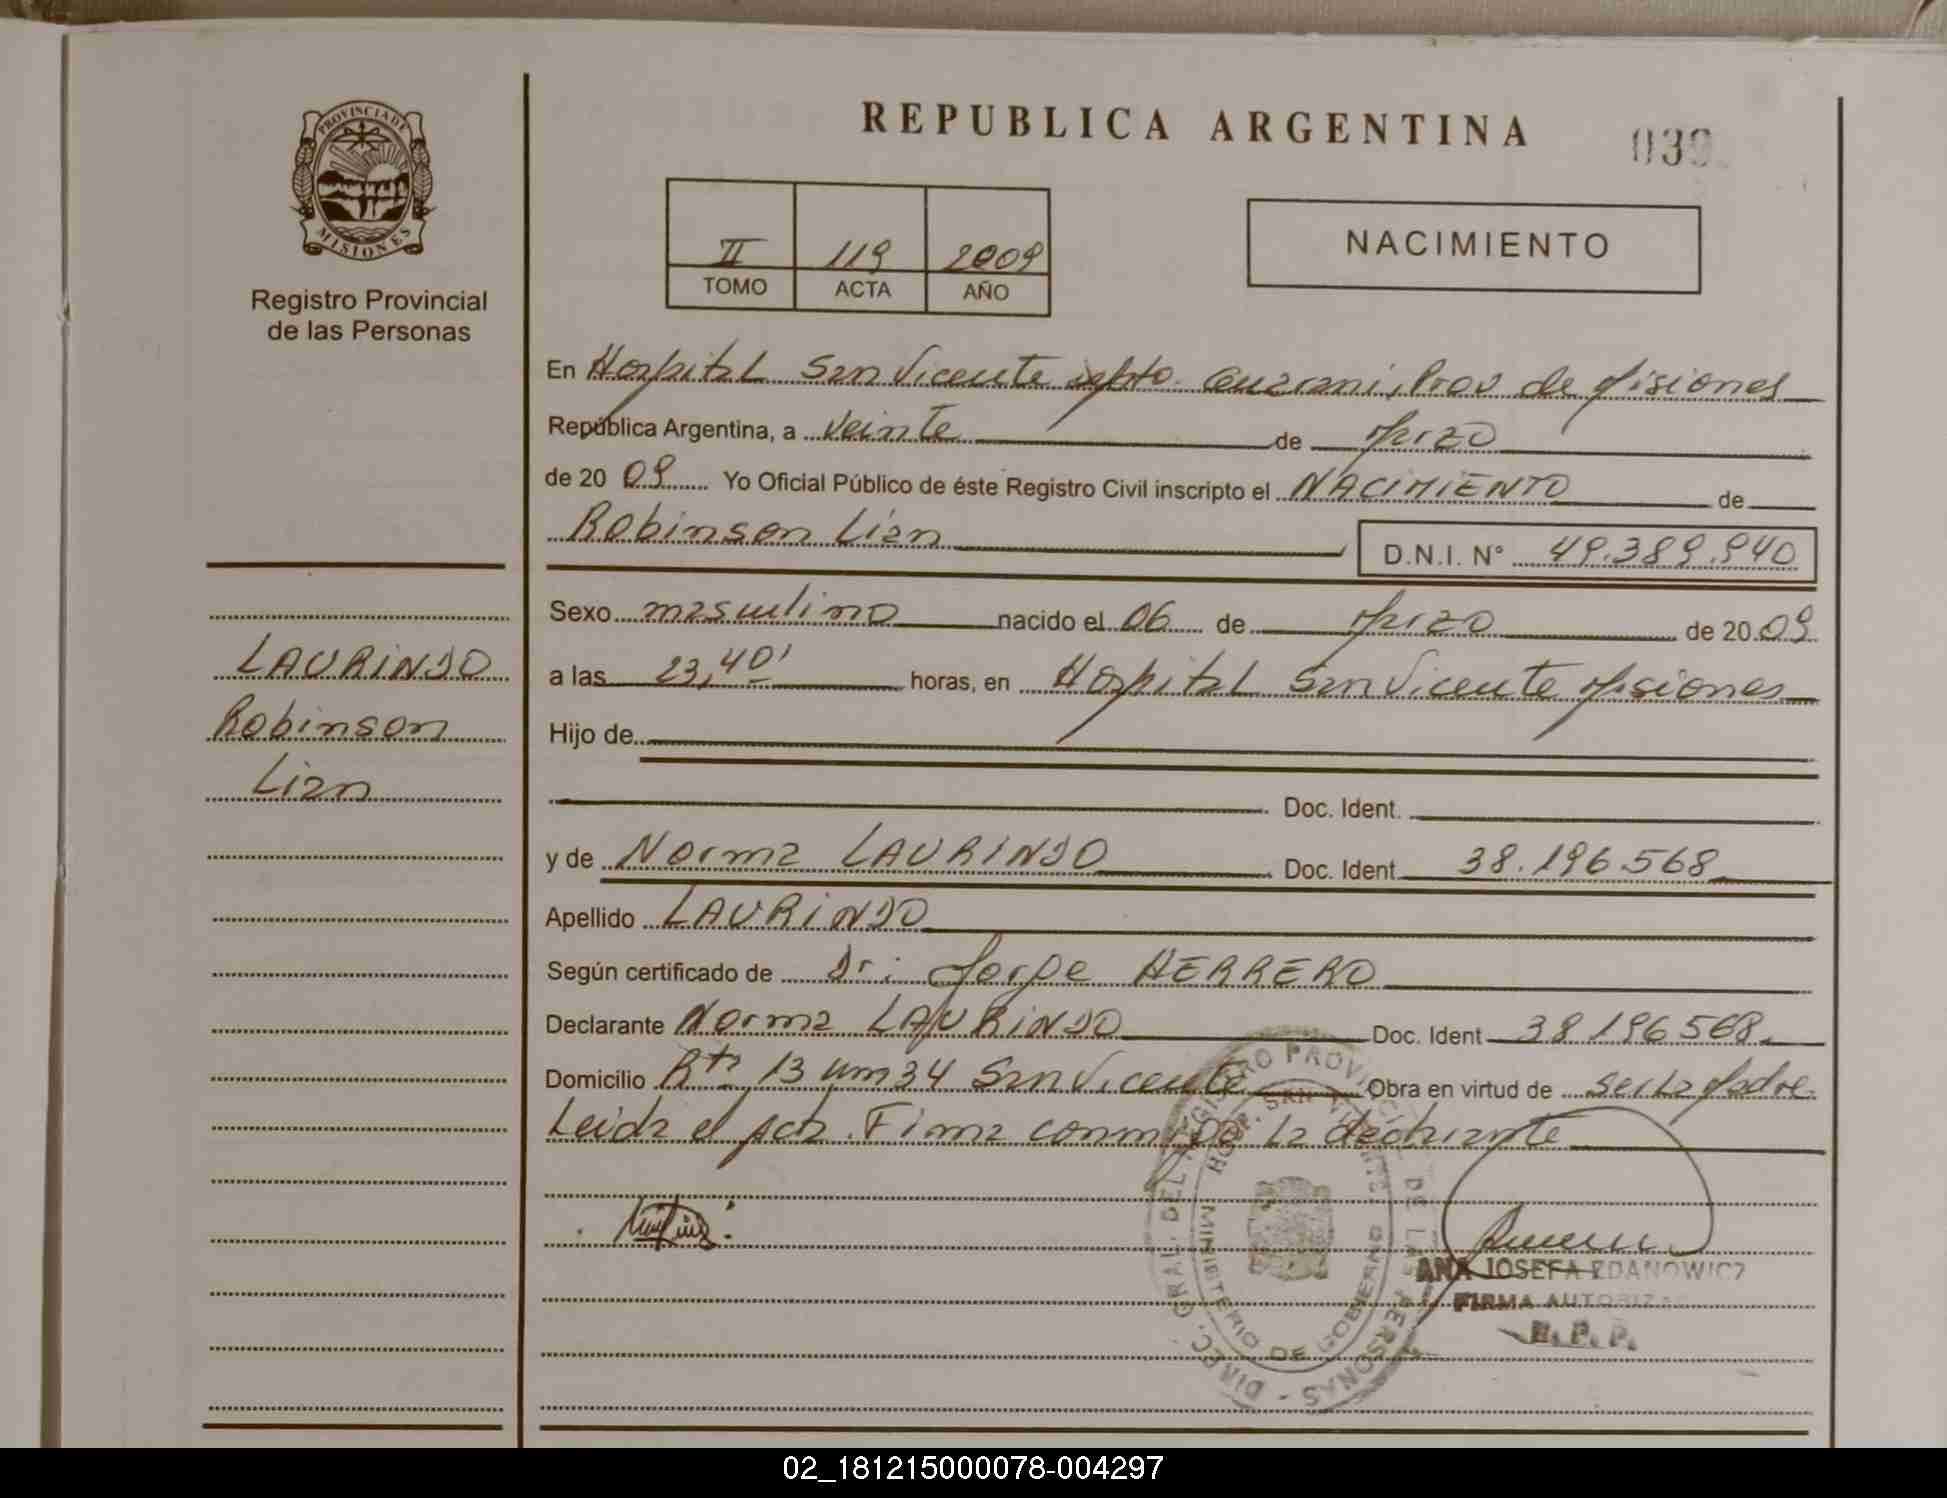 REPUBLICA ARGENTINA
039
PROVINCIA DE MISIONES
Registro Provincial
de las Personas
II 119 2009
TOMO ACTA AÑO
NACIMIENTO
En Hospital San Vicente depto. Guarani, Prov de Misiones
República Argentina, a veinte de Marzo
de 20 09 Yo Oficial Público de éste Registro Civil inscripto el NACIMIENTO de
Robinson Lian D.N.I. N° 49.389.940
Sexo masculino nacido el 06 de Marzo de 20 09
a las 23,40' horas, en Hospital San Vicente Misiones
Hijo de
Doc. Ident.
y de Norma LAURINDO Doc. Ident. 38.196.568
Apellido LAURINDO
Según certificado de Dr. Jorge HERRERO
Declarante Norma LAURINDO Doc. Ident 38 196 568
Domicilio Rta 13 km 34 San Vicente Obra en virtud de ser la Madre.
Leida el acta. Firma conmigo la declarante
LAURINDO
Robinson
Lian
DIREC. GRAL. DEL REGISTRO PROVINC. DE LAS PERSONAS
HOSP. SAN VICENTE
MINISTERIO DE GOBIERNO
ANA JOSEFA ZDANOWICZ
FIRMA AUTORIZADA
R. P. P.
02_181215000078-004297